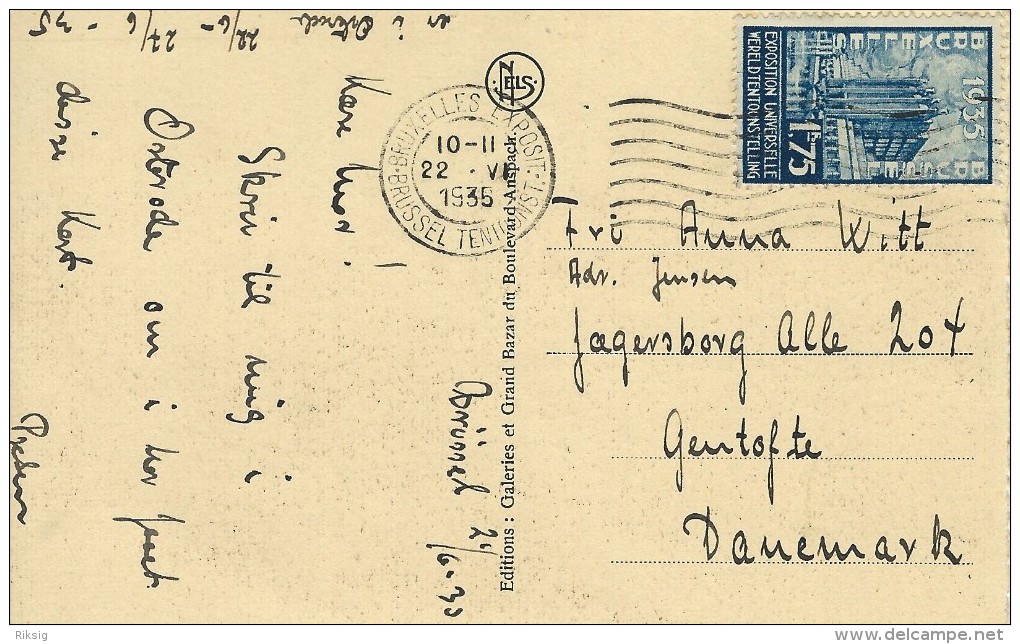 er i Ostende
22/6 - 27/6 - 35
Kære Mor!
Skriv til mig i
Osterode om i har faaet
disse Kort.
Preben
Brüssel 21/6-35
NELS
BRUXELLES EXPOSIT.
10-11
22 . VI
1935
BRUSSEL TENTOONST.
Editions : Galeries et Grand Bazar du Boulevard Anspach.
BRUXELLES 1935 BRUSSEL
EXPOSITION UNIVERSELLE
WERELDTENTOONSTELLING
1F75
Frü Anna Witt
Adr. Jensen
Jægersborg Alle 204
Gentofte
Danemark
Riksig
delcampe.net